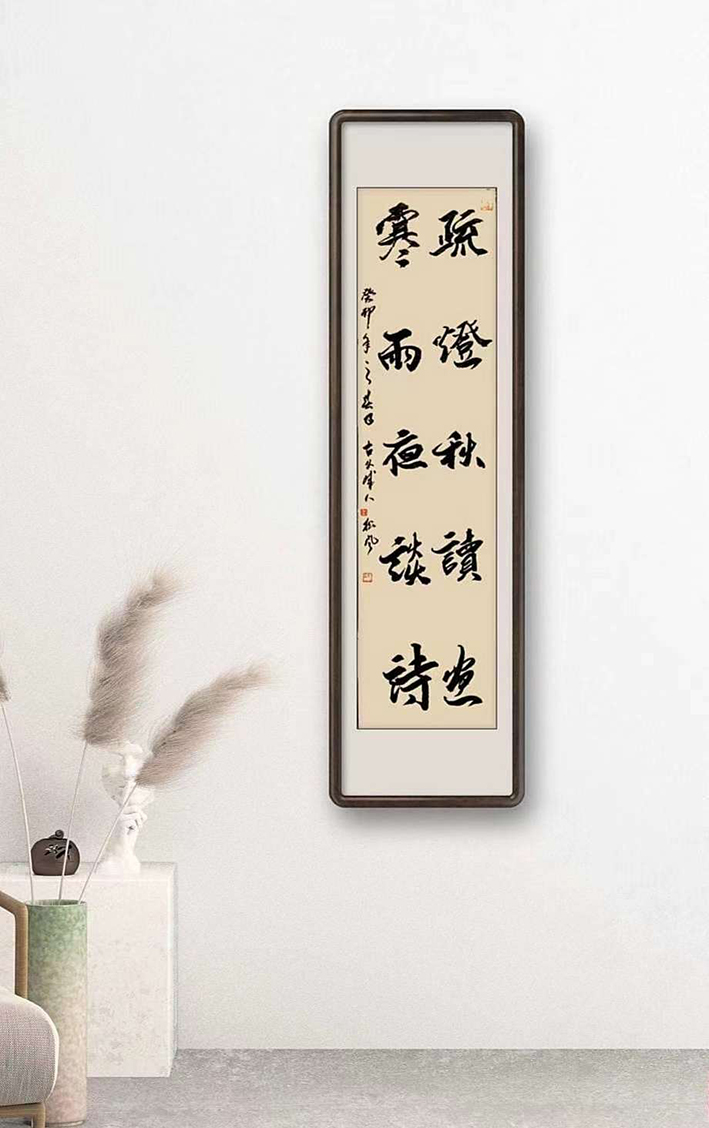 疏燈秋讀畫
寒雨夜談詩
癸卯年之春日 古